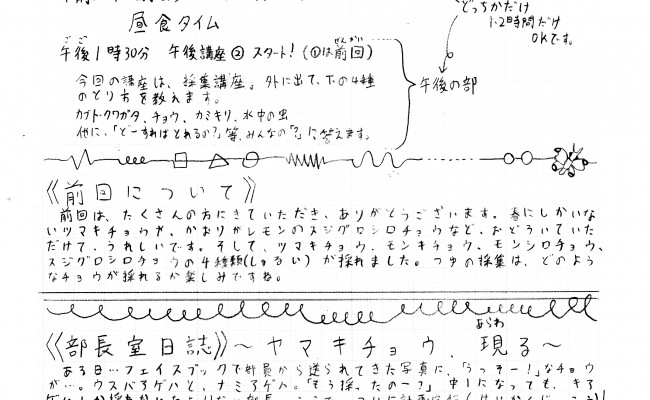 どっちかだけ
1・2時間だけ
OKです。
昼食タイム
ごご
ぜんかい
午後1時30分 午後講座② スタート!(①は前回)
午後の部
今回の講座は、採集講座。外に出て、下の4種
のとり方を教えます。
カブト・クワガタ、チョウ、カミキリ、水中の虫
他に、「どーすればとれるの?」等、みんなの「?」に答えます。
《前回について》
前回は、たくさんの方にきていただき、ありがとうございます。春にしかいな
いツマキチョウや、かおりがレモンのスジグロシロチョウなど、おどろいていた
だけて、うれしいです。そして、ツマキチョウ、モンキチョウ、モンシロチョウ、
スジグロシロチョウの4種類(しゅるい)が採れました。つゆの採集は、どのよう
なチョウが採れるか楽しみですね。
あらわ
《部長室日誌》~ヤマキチョウ、現る~
ある日…フェイスブックで部員から送られてきた写真に、「うっそー!」なチョウ
が…。ウスバアゲハと、ナミアゲハ。「もう採ったのー?」中1になっても、キアゲ